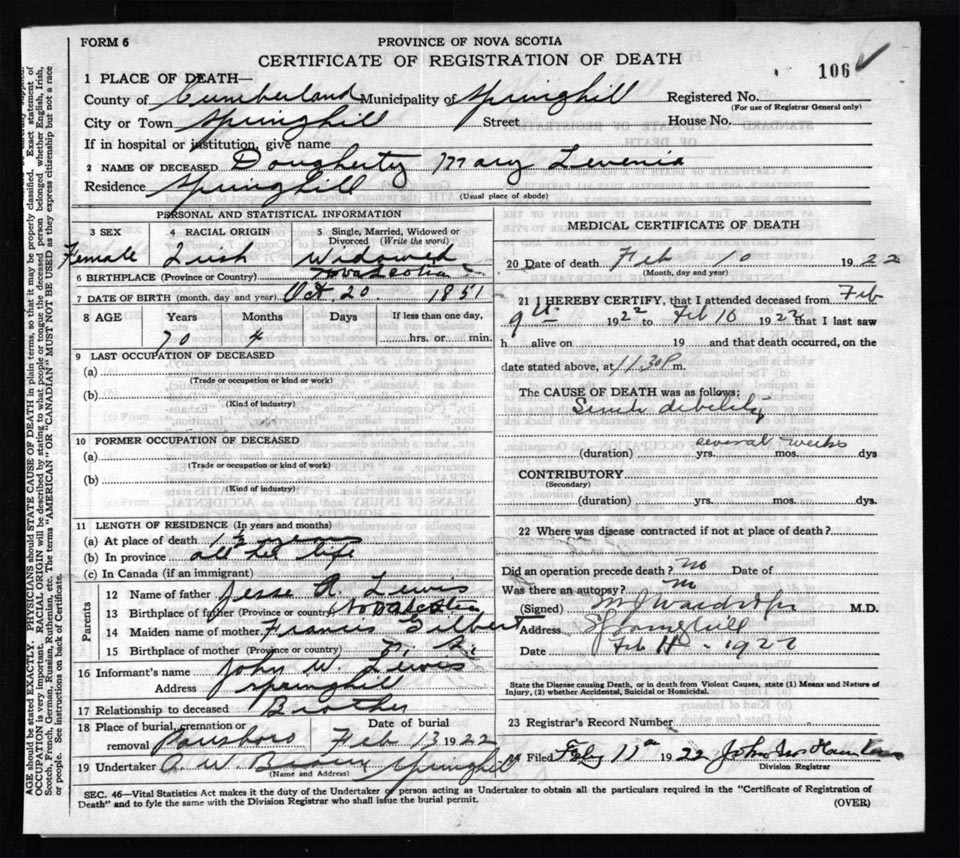 FORM 6
PROVINCE OF NOVA SCOTIA
CERTIFICATE OF REGISTRATION OF DEATH
106
1 PLACE OF DEATH—
County of Cumberland Municipality of Springhill Registered No.
(For use of Registrar General only)
City or Town Springhill Street House No.
If in hospital or institution, give name
2 NAME OF DECEASED Dougherty Mary Levenia
Residence Springhill
(Usual place of abode)
PERSONAL AND STATISTICAL INFORMATION
3 SEX 4 RACIAL ORIGIN 5 Single, Married, Widowed or Divorced (Write the word)
Female Irish Widowed
6 BIRTHPLACE (Province or Country) Nova Scotia
7 DATE OF BIRTH (month, day and year) Oct. 20. 1851
8 AGE Years Months Days If less than one day,
70 4 hrs. or min.
9 LAST OCCUPATION OF DECEASED
(a)
(Trade or occupation or kind or work)
(b)
(Kind of industry)
10 FORMER OCCUPATION OF DECEASED
(a)
(Trade or occupation or kind of work)
(b)
(Kind of industry)
11 LENGTH OF RESIDENCE (In years and months)
(a) At place of death 1½ years
(b) In province all her life
(c) In Canada (if an immigrant)
Parents
12 Name of father Jesse A. Lewis
13 Birthplace of father (Province or country) Nova Scotia
14 Maiden name of mother Francis Gilbert
15 Birthplace of mother (Province or country) N. S.
16 Informant's name John W. Lewis
Address Springhill
17 Relationship to deceased Brother
18 Place of burial, cremation or Date of burial
removal Parrsboro Feb 13 1922
19 Undertaker A. W. Brown Springhill
(Name and Address)
MEDICAL CERTIFICATE OF DEATH
20 Date of death Feb 10 1922
(Month, day and year)
21 I HEREBY CERTIFY, that I attended deceased from Feb
9th 1922 to Feb 10 1922 that I last saw
h alive on 19 and that death occurred, on
date stated above, at 11.30 P m.
The CAUSE OF DEATH was as follows:
Senile debility
several weeks
(duration) yrs. mos. dys
CONTRIBUTORY
(Secondary)
(duration) yrs. mos. dys.
22 Where was disease contracted if not at place of death?
Did an operation precede death? no Date of
Was there an autopsy? no
(Signed) M.D.
Address Springhill
Date Feb 11 - 1922
State the Disease causing Death, or in death from Violent Causes, state (1) Means and Nature of
Injury, (2) whether Accidental, Suicidal or Homicidal.
23 Registrar's Record Number
24 Filed 11th 1922 John
Division Registrar
SEC. 46—Vital Statistics Act makes it the duty of the Undertaker or person acting as Undertaker to obtain all the particulars required in the "Certificate of Registration of
Death" and to fyle the same with the Division Registrar who shall issue the burial permit.
(OVER)
AGE should be stated EXACTLY. PHYSICIANS should STATE CAUSE OF DEATH in plain terms, so that it may be properly classified. Exact statement of
OCCUPATION is very important. RACIAL ORIGIN will be described by stating to what people or tongue the deceased person belonged whether English, Irish,
Scotch, French, German, Russian, Ruthenian, etc. The terms "AMERICAN" OR "CANADIAN" MUST NOT BE USED as they express citizenship but not a race
or people. See instructions on back of Certificate.